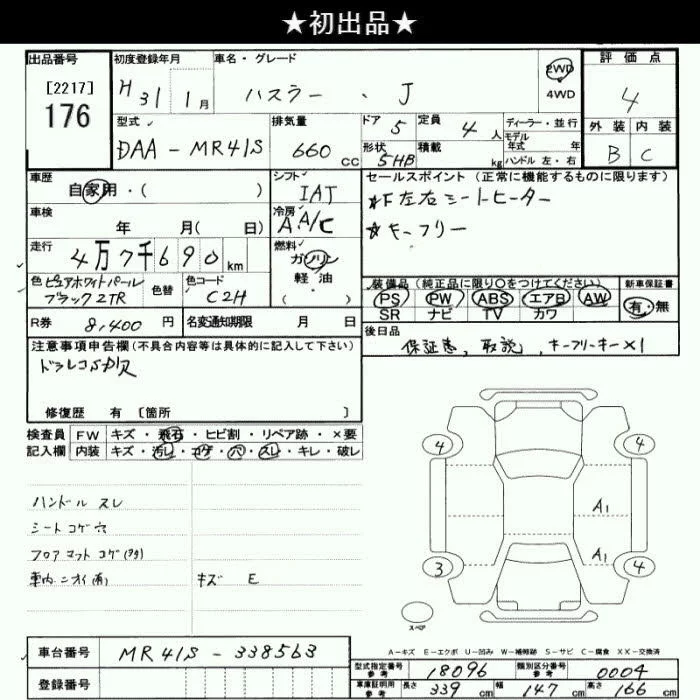 ★初出品★
出品番号 初度登録年月 車名・グレード 評価点
[2217] 176 H 31 1月 ハスラー・J 2WD 4WD 4
型式 DAA-MR41S 排気量 660 CC ドア 5 定員 4人 ディーラー・並行 外装 内装
形状 5HB 積載 kg モデル年式 年式 ハンドル 左・右 B C
車歴 自家用・( ) シフト IAT セールスポイント(正常に機能するものに限ります)
車検 年 月( 日) 冷房 A A/C ★F左右シートヒーター
走行 4万7千690km 燃料 ガソリン ★キーフリー
色 ピュアホワイトパール 色替 色コード C2H 軽油 装備品(純正品に限り○をつけてください) 新車保証書
ブラック2TR ( ) PS PW ABS エアB AW 有・無
R券 8,400円 名変通知期限 月 日 SR ナビ TV カワ
注意事項申告欄(不具合内容等は具体的に記入して下さい) 後日品
保証書, 取説, キーフリーキー×1
修復歴 有 [箇所 ]
検査員 FW キズ・飛石・ヒビ割・リペア跡・×要
記入欄 内装 キズ・汚レ・コゲ・穴・スレ・キレ・破レ
4 4
ハンドル スレ
シート コゲ穴 A1
フロアマット コゲ
車内ニオイ(有) キズ E A1
3 4
スペア
A-キズ E-エクボ U-凹み W-補修跡 S-サビ C-腐食 XX-交換済
車台番号 MR41S-338563 型式指定番号 参考 18096 類別区分番号 参考 0004
登録番号 車庫証明用 参考 長さ 339cm 幅 147cm 高さ 166cm